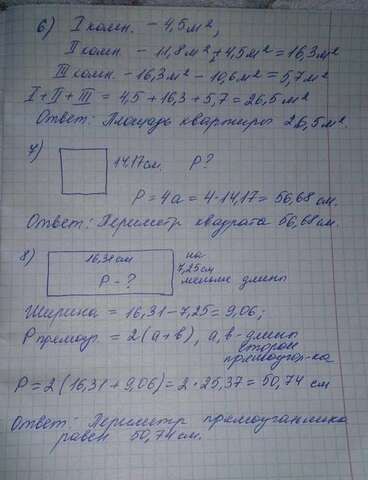 6) I комн. - 4,5 м²,
II комн. - 11,8 м² + 4,5 м² = 16,3 м²
III комн. - 16,3 м² - 10,6 м² = 5,7 м²
I + II + III = 4,5 + 16,3 + 5,7 = 26,5 м²
Ответ: Площадь квартиры 26,5 м².
7)
14,17 см. P?
P = 4a = 4·14,17 = 56,68 см.
Ответ: Периметр квадрата 56,68 см.
8)
16,31 см
P - ?
на
7,25 см
меньше длины
Ширина = 16,31 - 7,25 = 9,06;
P прямоуг. = 2(a+b), a, b - длины
сторон
прямоугол-ка
P = 2(16,31 + 9,06) = 2·25,37 = 50,74 см
Ответ: Периметр прямоугольника
равен 50,74 см.